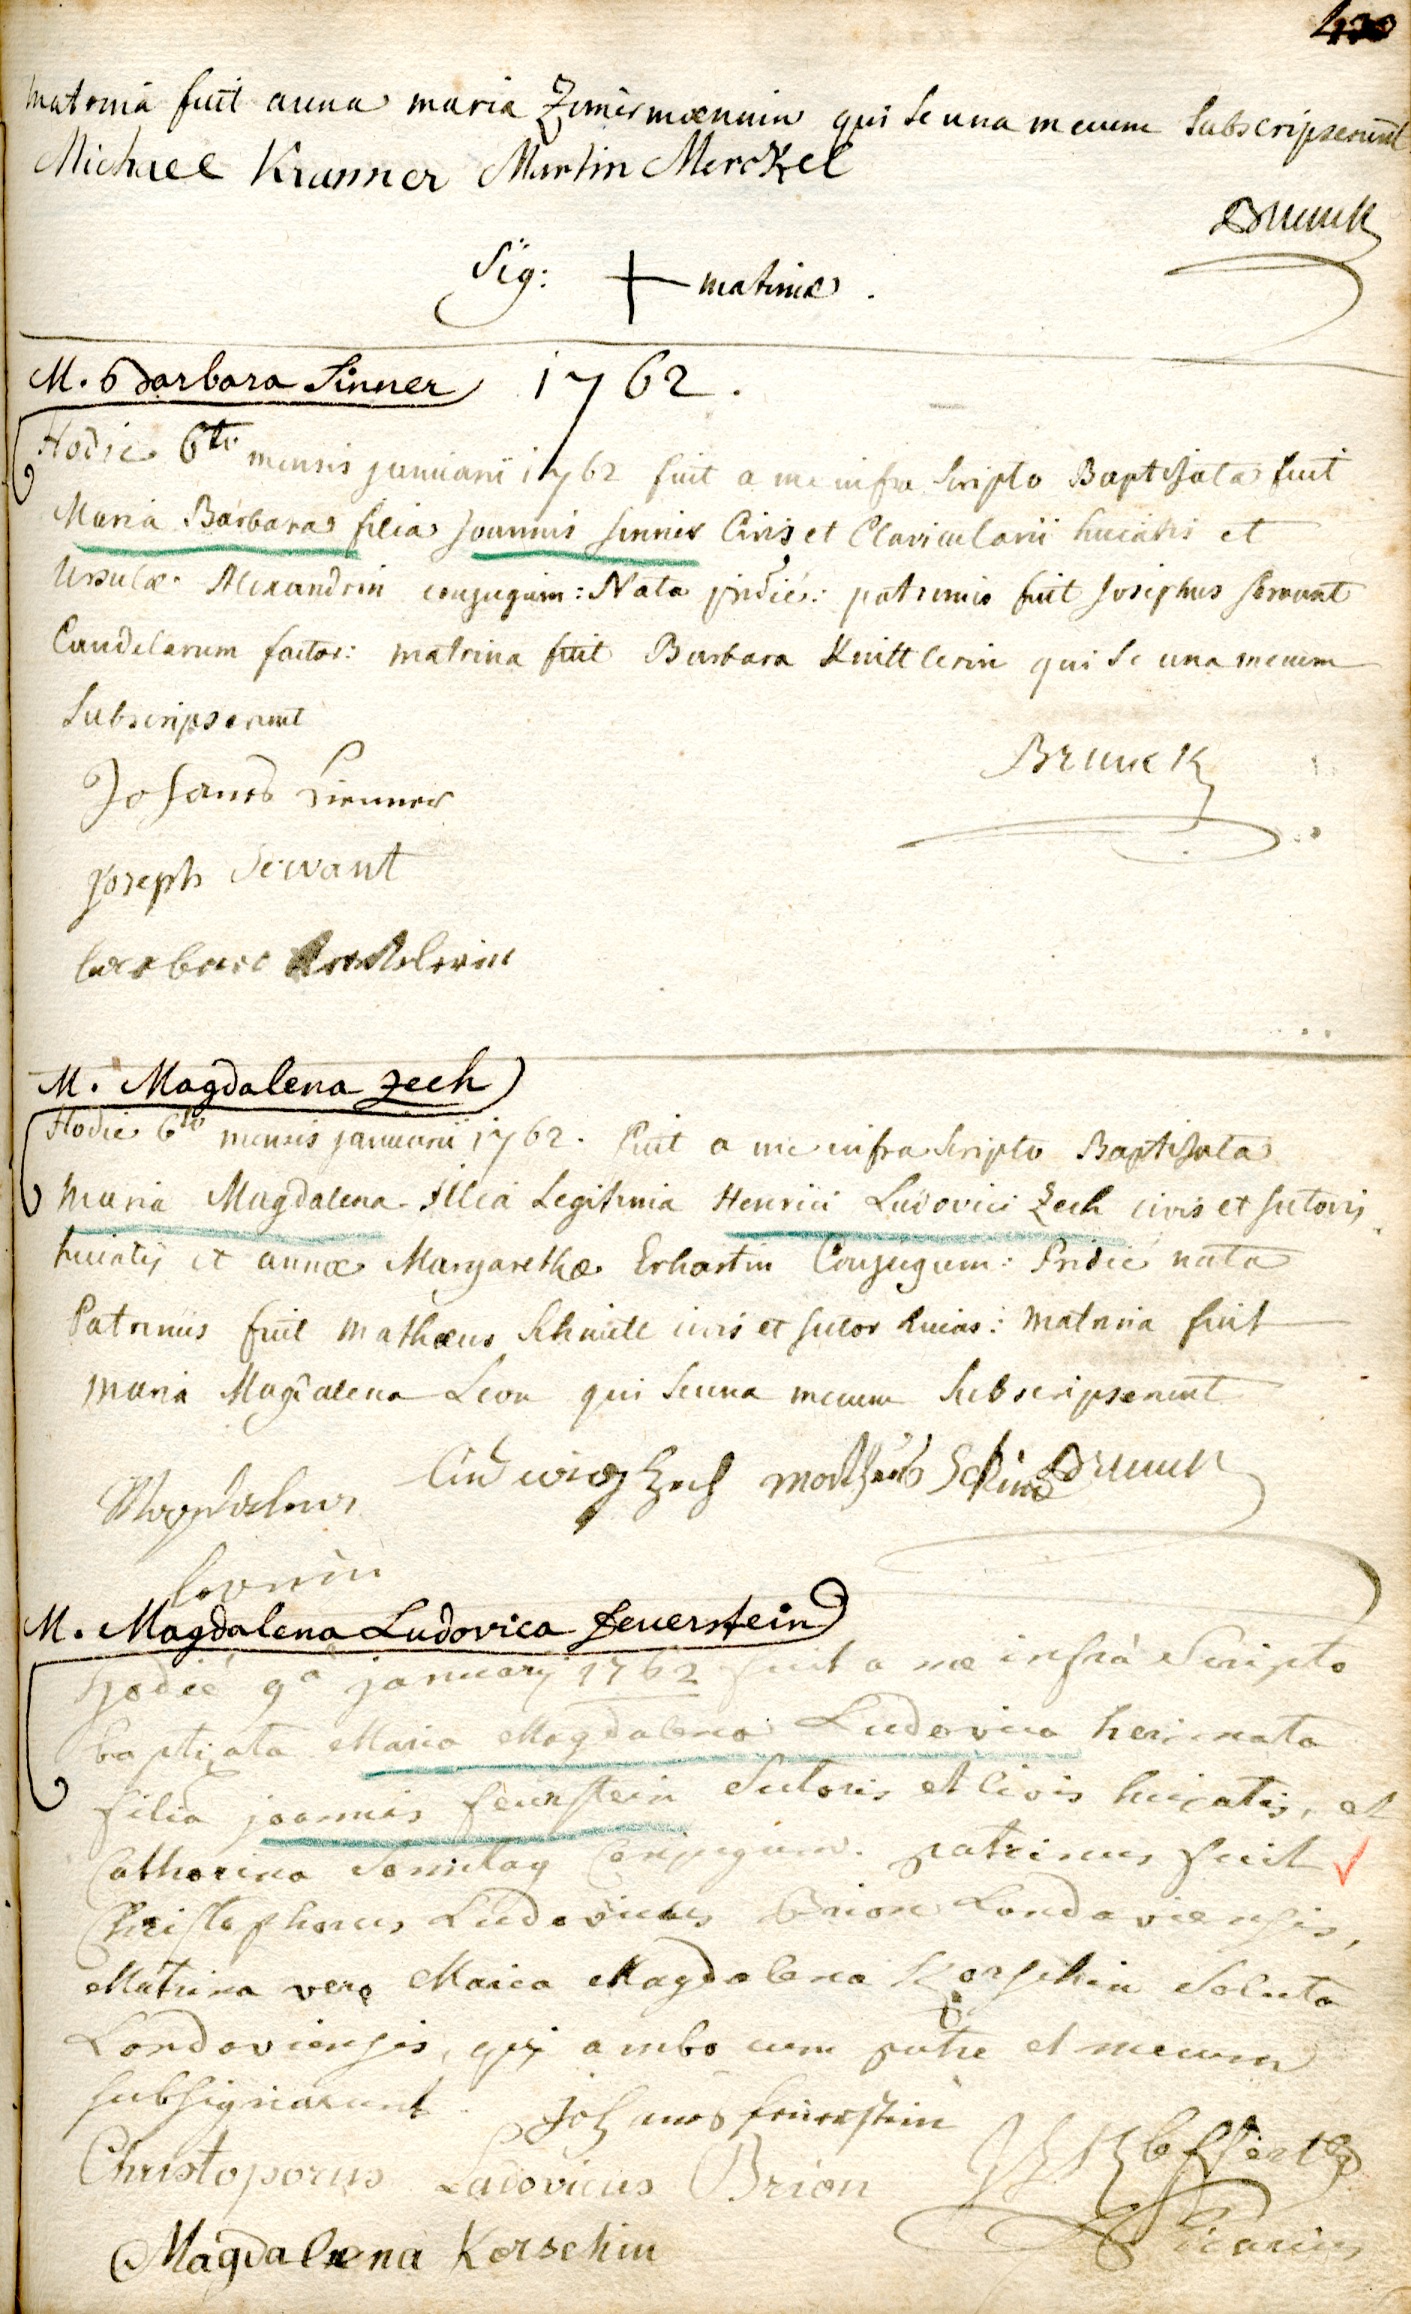 matrina fuit anna maria Zimermænnin qui se una mecum subscripserunt
Michael Kranner Martin Merckel
Brunck
Sig: + matrinæ.
M. Barbara Sinner 1762.
Hodie 6to mensis januarii 1762 fuit a me infra scripto Baptisata fuit
Maria Barbara filia Joannis sinner Civis et Clavicularii huiatis et
Ursulæ Alexandrin conjugum: Nata pridie: patrinus fuit Josephus servant
Candelarum factor: matrina fuit Barbara Knittlerin qui se una mecum
subscripserunt
Brunck
Johanes Sienner
joseph Servant
M. Magdalena Zech
Hodie 6to mensis januarii 1762. fuit a me infra scripto Baptisata
Maria Magdalena filia Legitima Henrici Ludovici Zech civis et sutoris
huiatis et annæ Margarethæ Erhartin Conjugum: Pridie nata
Patrinus fuit mathæus Schmitt civis et sutor huias: matrina fuit
maria Magdalena Leon qui se una mecum subscripserunt
Ludwig Zech Brunck
M. Magdalena Ludovica Feuerstein
Hodie 9a january 1762 fuit a me infra Scripto
baptizata Maria Magdalena Ludovica heri nata
filia joannis feurstein Sutoris et Civis huiatis, et
Catharina Sonntag Conjugum. patrinus fuit
Christophorus Ludovicus Brion Landaviensis,
Matrina vero Maria Magdalena Korschin Soluta
Landaviensis, qui ambo cum patre et mecum
subsignarunt
Christoporus Ludovicus Brion
Vicarius
Magdalena Korschin